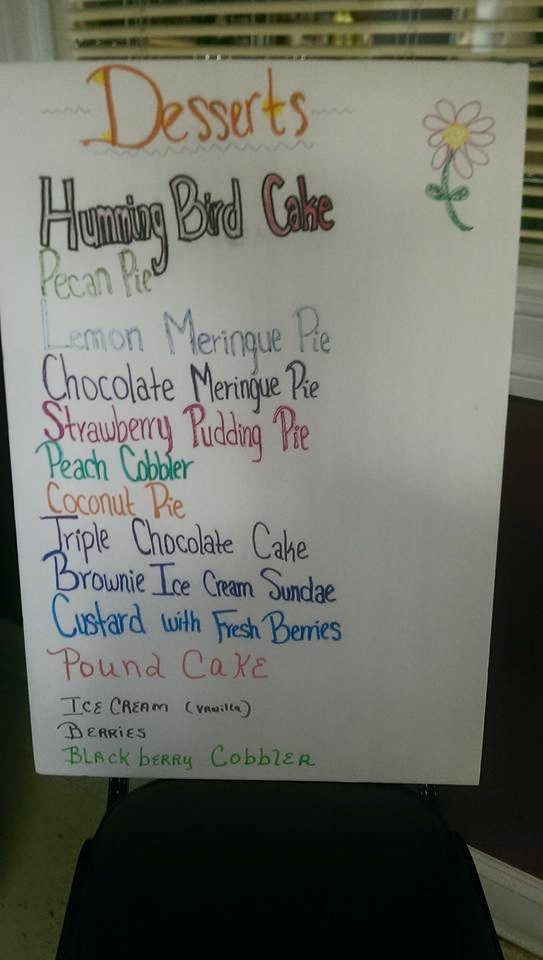 Desserts
Humming Bird Cake
Pecan Pie
Lemon Meringue Pie
Chocolate Meringue Pie
Strawberry Pudding Pie
Peach Cobbler
Coconut Pie
Triple Chocolate Cake
Brownie Ice Cream Sundae
Custard with Fresh Berries
Pound Cake
ICE CREAM (Vanilla)
BERRIES
BLACKBERRY CobblER